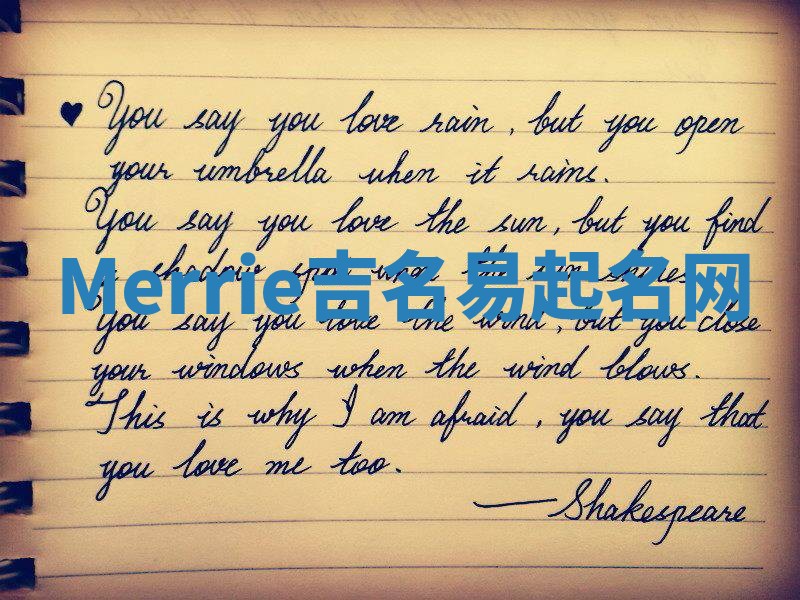 ♥ You say you love rain, but you open
your umbrella when it rains.
You say you love the sun, but you find
a shadow spot when the sun shines.
Merrie吉名易起名网
You say you love the wind, but you close
your windows when the wind blows.
This is why I am afraid, you say that
you love me too.
—Shakespeare